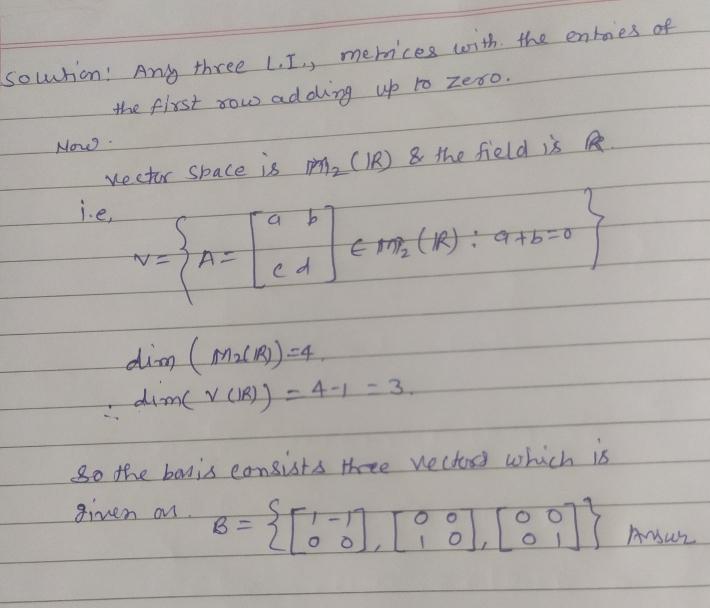 Solution: Any three L.I., metrices with the entries of
the first row adding up to zero.
Now.
vector space is M₂(IR) & the field is R.
i.e,
V = { A = [a b; c d] ∈ M₂(IR) : a+b=0 }
dim (M₂(IR)) = 4.
∴ dim( V(IR)) = 4-1 = 3.
So the basis consists three vectors which is
given as.
B = { [1 -1; 0 0], [0 0; 1 0], [0 0; 0 1] } Answer